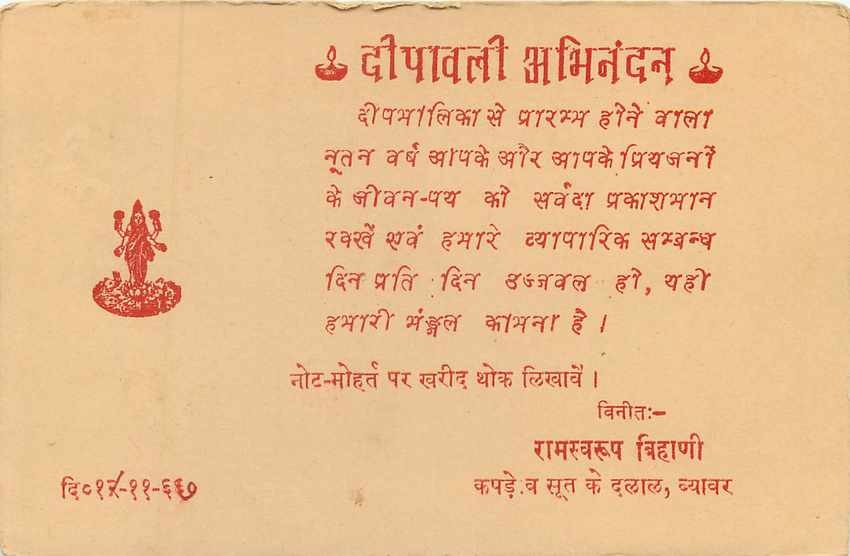 दीपावली अभिनंदन
दीपमालिका से प्रारम्भ होने वाला
नूतन वर्ष आपके और आपके प्रियजनों
के जीवन-पथ को सर्वदा प्रकाशमान
रक्खें एवं हमारे व्यापारिक सम्बन्ध
दिन प्रति दिन उज्जवल हो, यही
हमारी मंङ्गल कामना है ।
नोट-मोहर्त पर खरीद थोक लिखावें ।
विनीतः-
रामस्वरूप त्रिहाणी
कपड़े व सूत के दलाल, ब्यावर